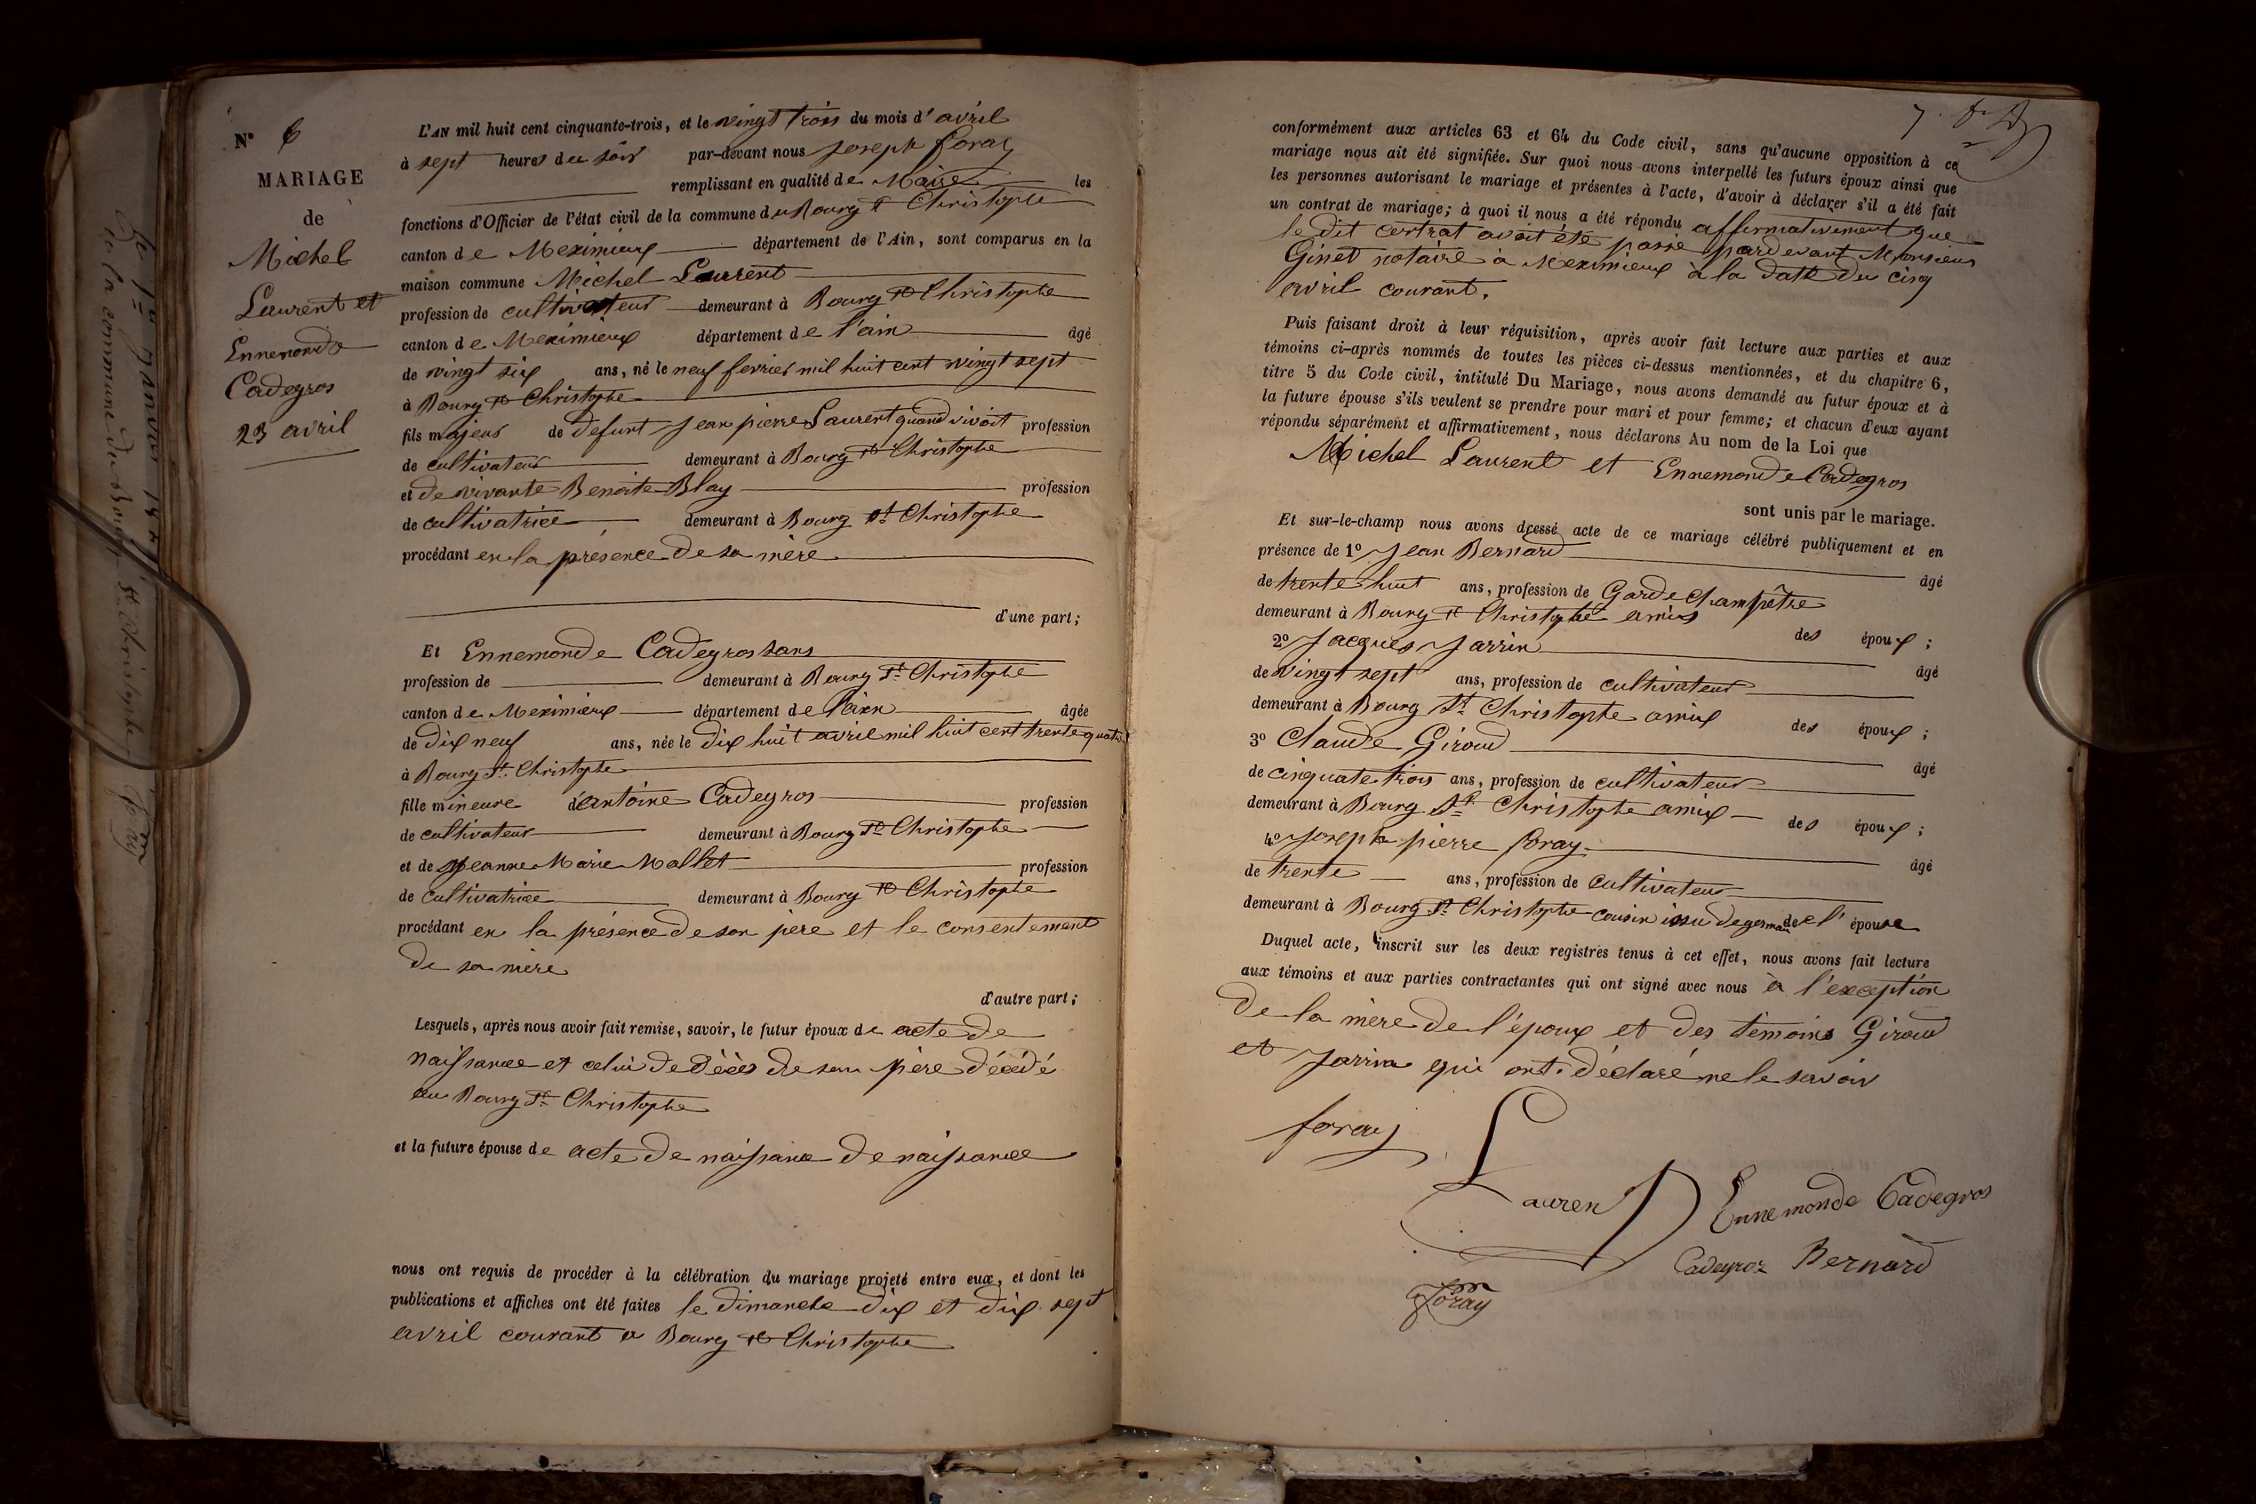 N° 6
MARIAGE
de
Michel
Laurent et
Ennemonde
Cadegros
23 avril
L'AN mil huit cent cinquante-trois, et le vingt trois du mois d'avril
à sept heures du soir par-devant nous Joseph foray
remplissant en qualité de Maire les
fonctions d'Officier de l'état civil de la commune du Bourg St Christophe
canton de Meximieux département de l'Ain, sont comparus en la
maison commune Michel Laurent
profession de cultivateur demeurant à Bourg St Christophe
canton de Meximieux département de l'ain âgé
de vingt six ans, né le neuf fevrier mil huit cent vingt sept
à Bourg St Christophe
fils majeur de defunt Jean pierre Laurent quand vivait profession
de cultivateur demeurant à Bourg St Christophe
et de vivante Benoite Blay profession
de cultivatrice demeurant à Bourg St Christophe
procédant en la présence de sa mère
d'une part;
Et Ennemonde Cadegros sans
profession de demeurant à Bourg St Christophe
canton de Meximieux département de l'ain âgée
de dix neuf ans, née le dix huit avril mil huit cent trente quatre
à Bourg St Christophe
fille mineure d'antoine Cadegros profession
de cultivateur demeurant à Bourg St Christophe
et de Jeanne Marie Mallet profession
de cultivatrice demeurant à Bourg St Christophe
procédant en la présence de son père et le consentement
de sa mère
d'autre part;
Lesquels, après nous avoir fait remise, savoir, le futur époux de acte de
naissance et celui de décès de son père décédé
au Bourg St Christophe
et la future épouse de acte de naissance de naissance
nous ont requis de procéder à la célébration du mariage projeté entre eux, et dont les
publications et affiches ont été faites le dimanche dix et dix sept
avril courant a Bourg St Christophe
7.
conformément aux articles 63 et 64 du Code civil, sans qu'aucune opposition à ce
mariage nous ait été signifiée. Sur quoi nous avons interpellé les futurs époux ainsi que
les personnes autorisant le mariage et présentes à l'acte, d'avoir à déclarer s'il a été fait
un contrat de mariage; à quoi il nous a été répondu affirmativement que
le dit contrat avoit été passé pardevant Monsieur
Ginet notaire à Meximieux à la date du cinq
avril courant.
Puis faisant droit à leur réquisition, après avoir fait lecture aux parties et aux
témoins ci-après nommés de toutes les pièces ci-dessus mentionnées, et du chapitre 6,
titre 5 du Code civil, intitulé Du Mariage, nous avons demandé au futur époux et à
la future épouse s'ils veulent se prendre pour mari et pour femme; et chacun d'eux ayant
répondu séparément et affirmativement, nous déclarons Au nom de la Loi que
Michel Laurent et Ennemonde Cadegros
sont unis par le mariage.
Et sur-le-champ nous avons dressé acte de ce mariage célébré publiquement et en
présence de 1° Jean Bernard âgé
de trente huit ans, profession de Garde Champêtre
demeurant à Bourg St Christophe amis des époux;
2° Jacques Jarrin âgé
de vingt sept ans, profession de cultivateur
demeurant à Bourg St Christophe amix des époux;
3° Claude Giroud âgé
de cinquate trois ans, profession de cultivateur
demeurant à Bourg St Christophe amix des époux;
4° Joseph pierre foray âgé
de trente ans, profession de cultivateur
demeurant à Bourg St Christophe cousin issu de germain de l'épouse
Duquel acte, inscrit sur les deux registres tenus à cet effet, nous avons fait lecture
aux témoins et aux parties contractantes qui ont signé avec nous à l'exception
de la mère de l'époux et des témoins Giroud
et Jarrin qui ont déclaré ne le savoir
foray
Laurent
Ennemonde Cadegros
Cadegroz Bernard
foray